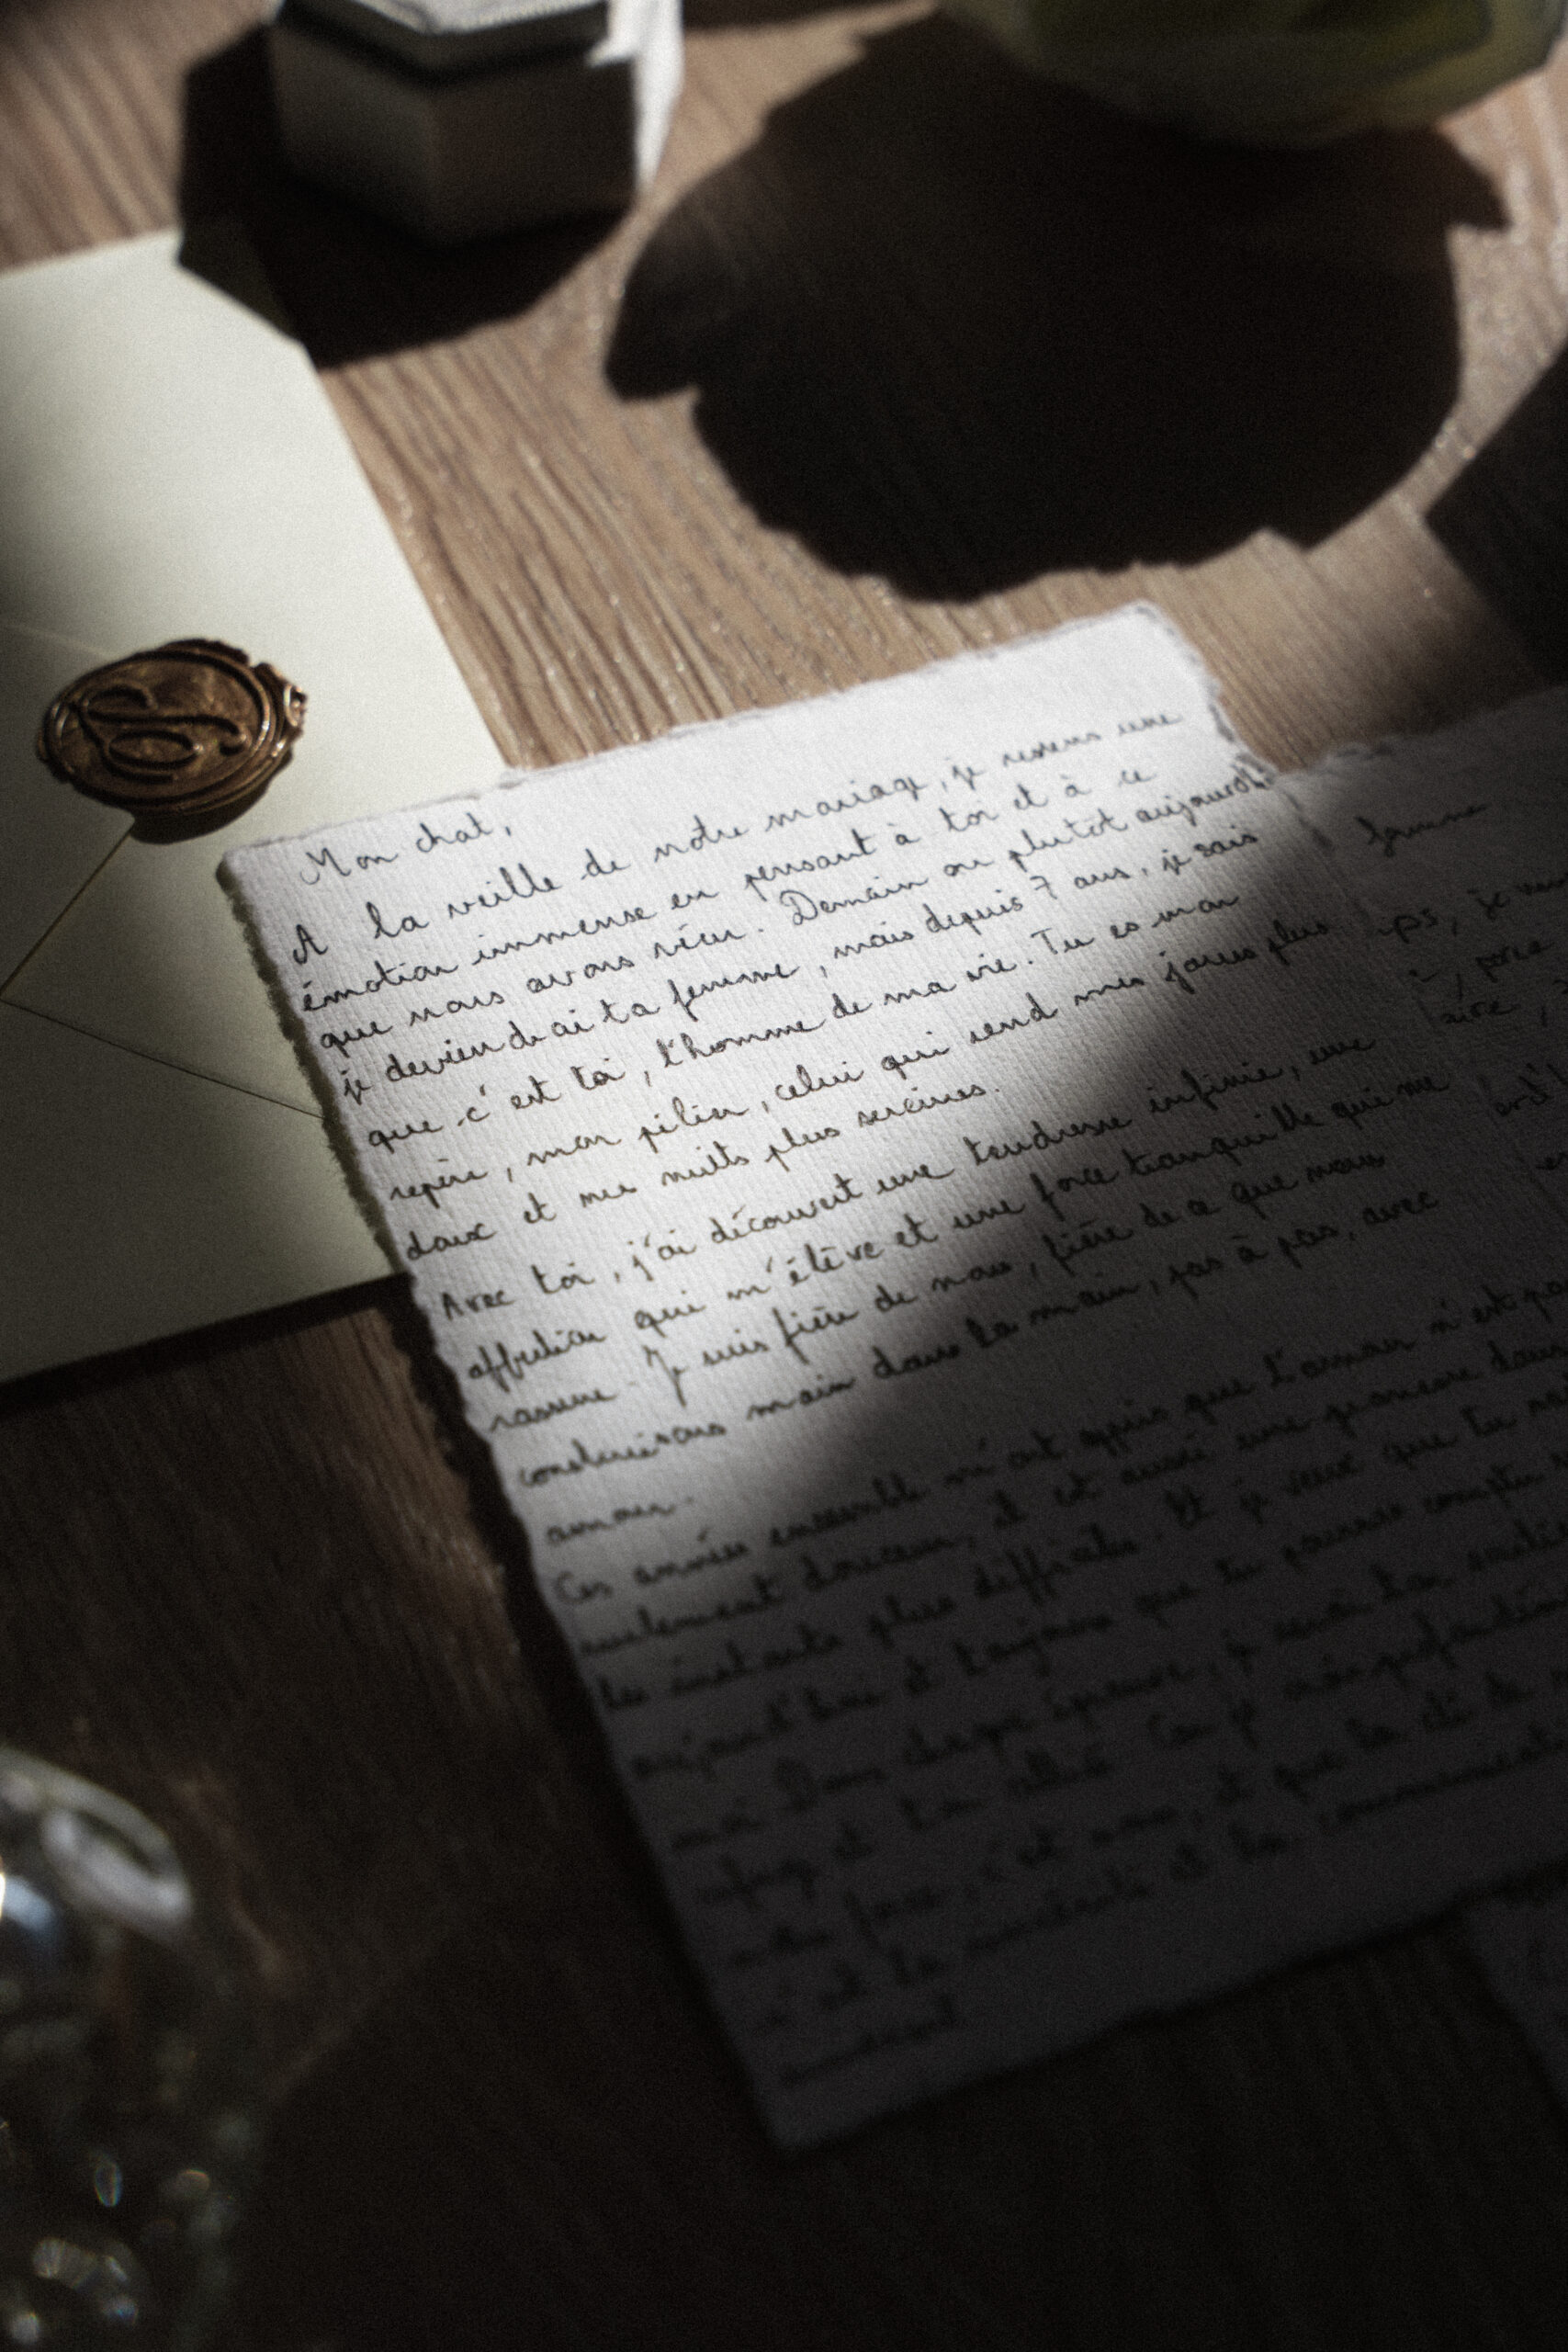 Mon chat,
A la veille de notre mariage, je ressens une
émotion immense en pensant à toi et à ce
que nous avons vécu. Demain ou plutôt aujourd'h
je deviendrai ta femme, mais depuis 7 ans, je sais
que c'est toi, l'homme de ma vie. Tu es mon
repère, mon pilier, celui qui rend mes jours plus
doux et mes nuits plus sereines.
Avec toi, j'ai découvert une tendresse infinie, une
affection qui m'élève et une force tranquille qui me
rassure. Je suis fière de nous, fière de ce que nous
construisons main dans la main, pas à pas, avec
amour.
Ces années ensemble m'ont appris que l'amour n'est pas
seulement douceur, il est aussi une promesse dans
les instants plus difficiles. Et je veux que tu
aujourd'hui et toujours que tu pourras compter
moi. Dans chaque épreuve, je serai ton
refuge et ta alliée. Car je crois profondément
force, c'est nous, et que la clé de
c'est la et la
femme